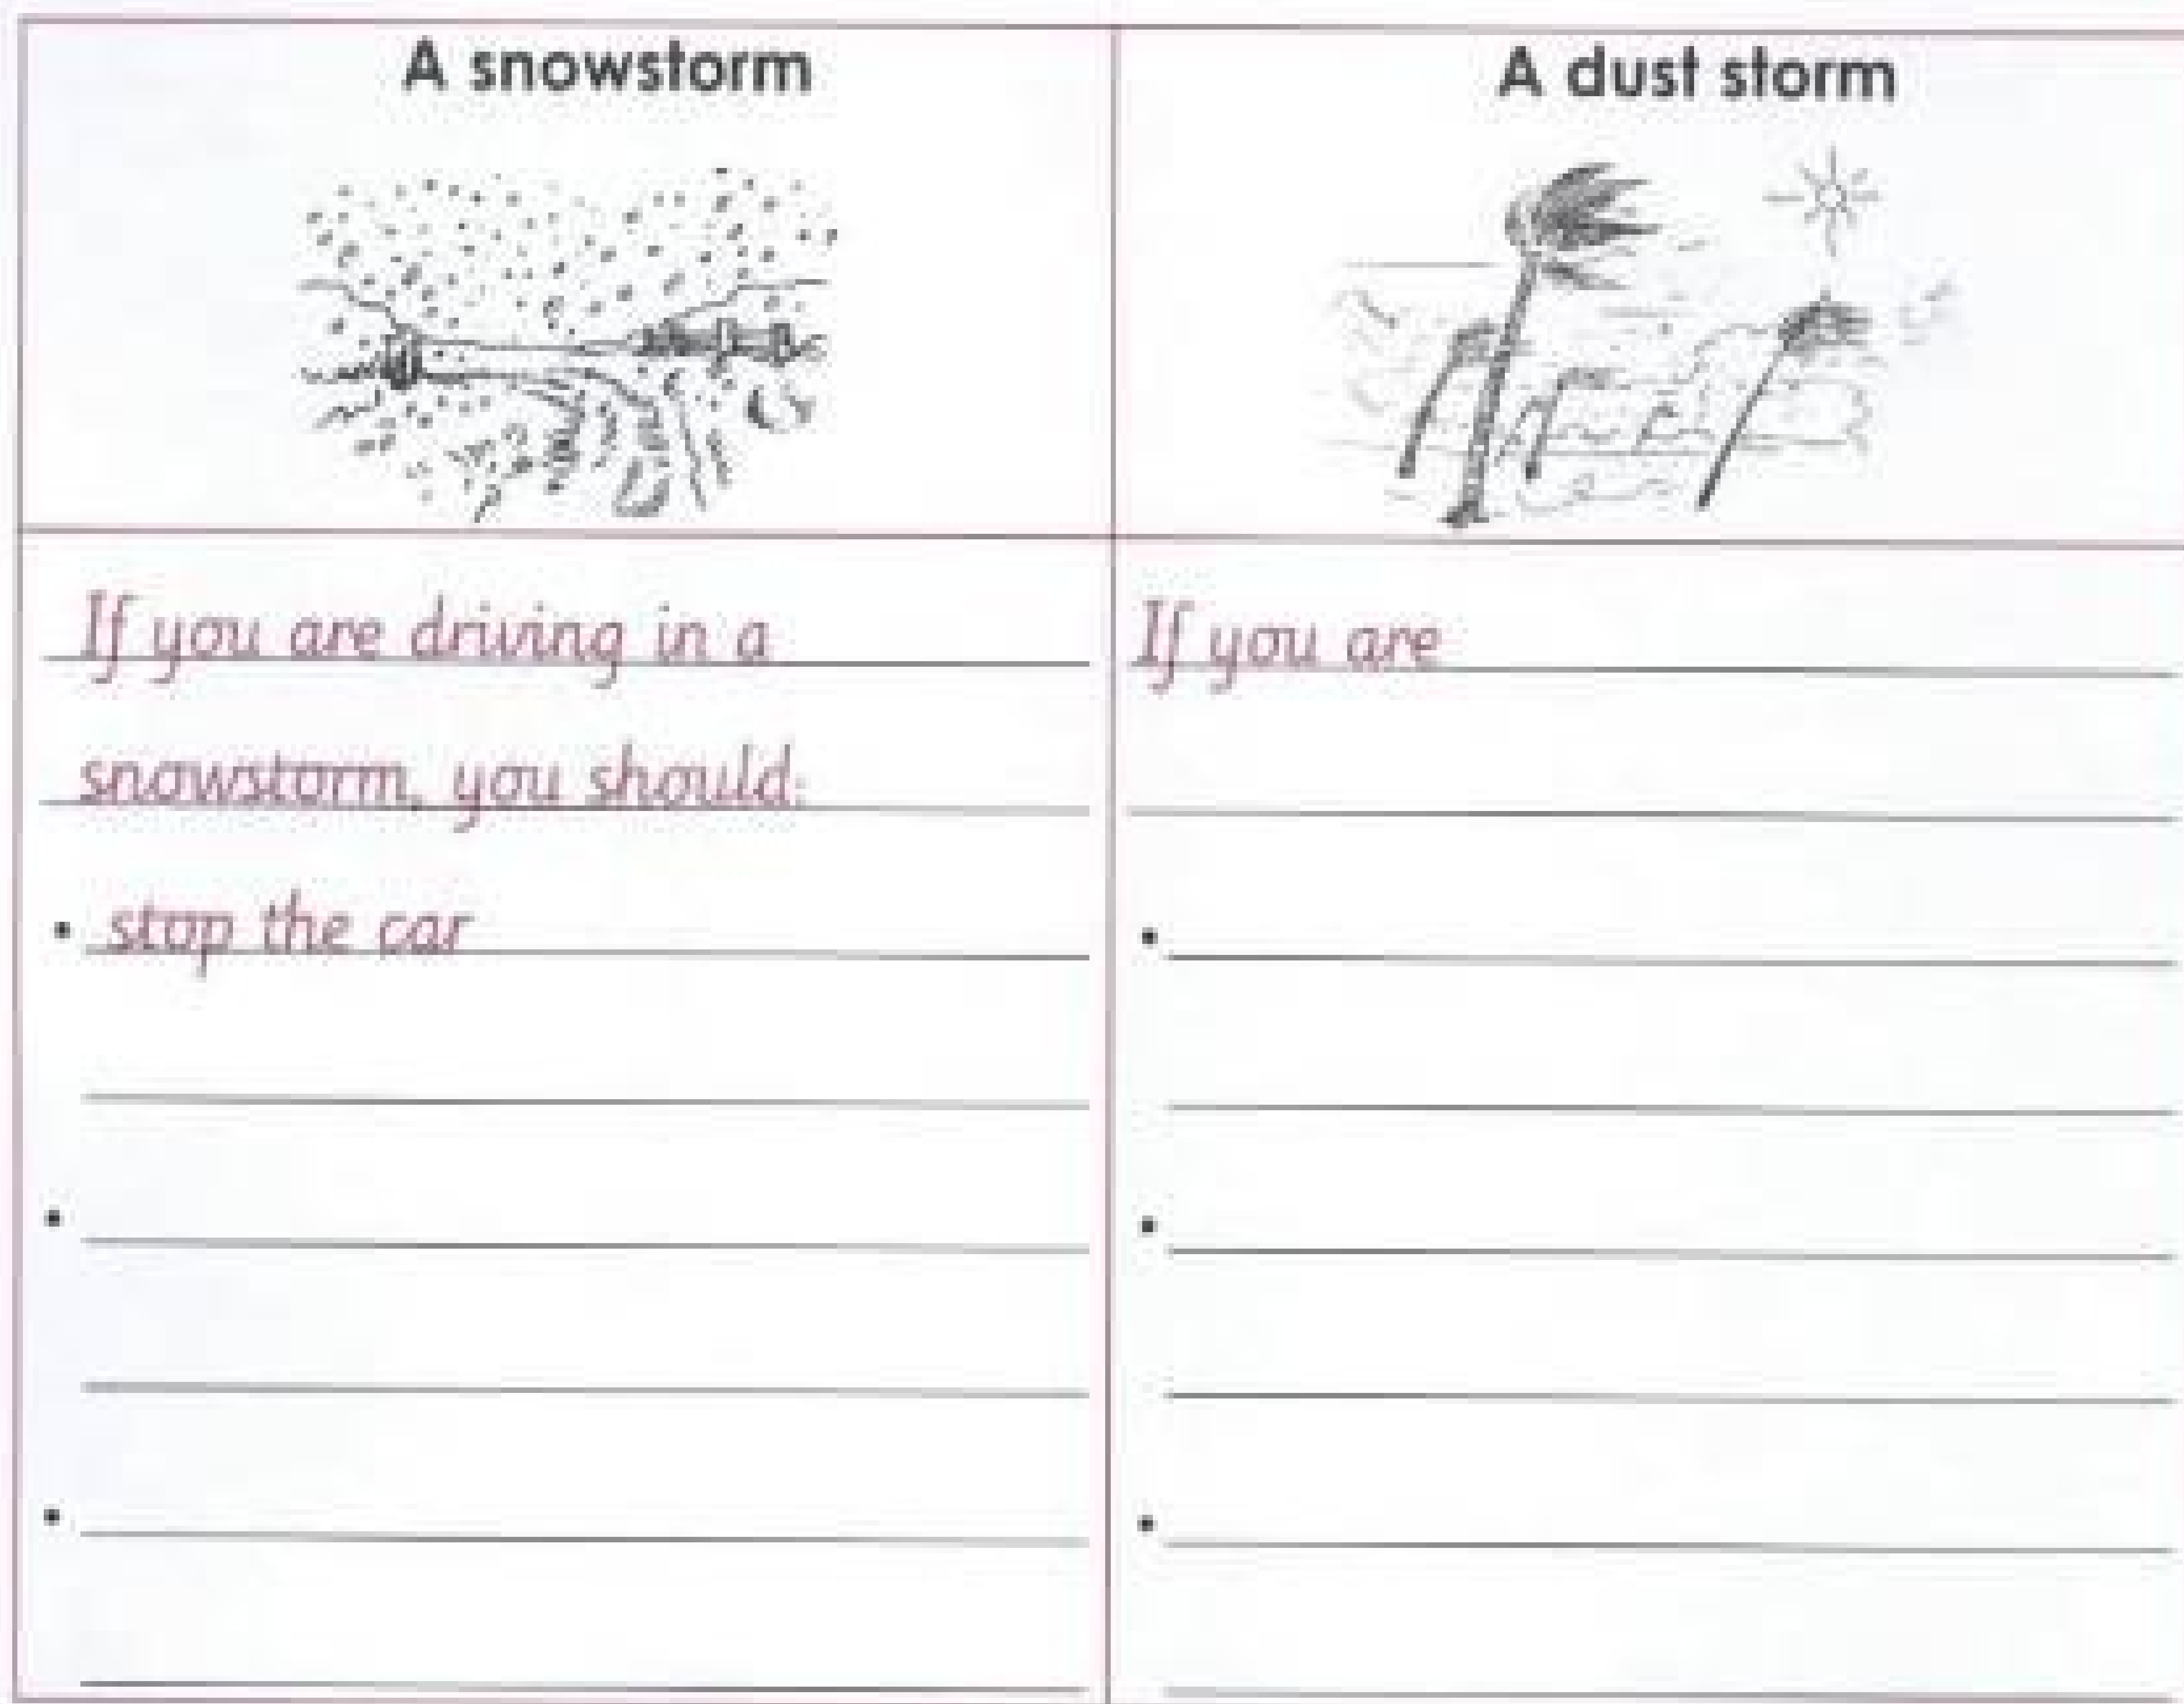 A snowstorm
A dust storm
If you are driving in a
snowstorm, you should:
• stop the car
•
•
If you are
•
•
•